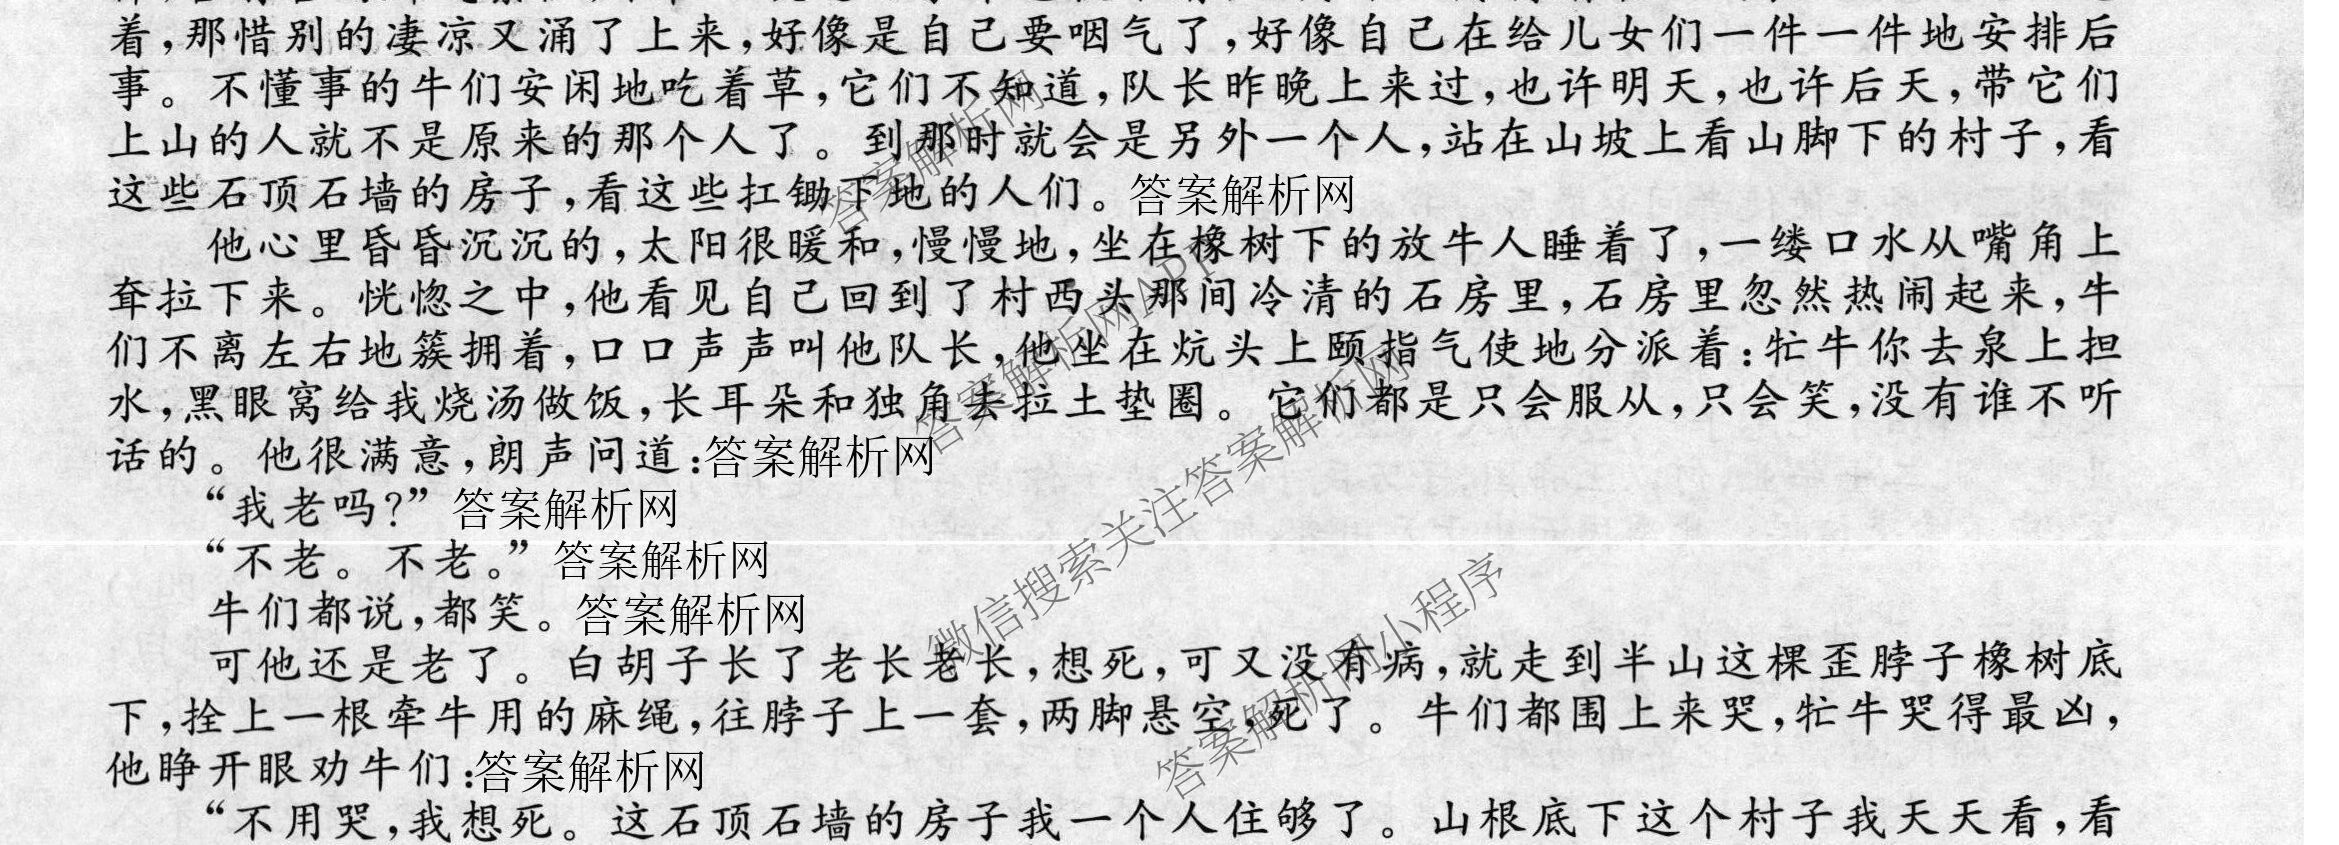 着,那惜别的凄凉又涌了上来,好像是自己要咽气了,好像自己在给儿女们一件一件地安排后
事。不懂事的牛们安闲地吃着草,它们不知道,队长昨晚上来过,也许明天,也许后天,带它们
上山的人就不是原来的那个人了。到那时就会是另外一个人,站在山坡上看山脚下的村子,看
这些石顶石墙的房子,看这些扛锄下地的人们。答案解析网
他心里昏昏沉沉的,太阳很暖和,慢慢地,坐在橡树下的放牛人睡着了,一缕口水从嘴角上
耷拉下来。恍惚之中,他看见自己回到了村西头那间冷清的石房里,石房里忽然热闹起来,牛
们不离左右地簇拥着,口口声声叫他队长,他坐在炕头上颐指气使地分派着:牤牛你去泉上担
水,黑眼窝给我烧汤做饭,长耳朵和独角去拉土垫圈。它们都是只会服从,只会笑,没有谁不听
话的。他很满意,朗声问道:答案解析网
“我老吗?”答案解析网
“不老。不老。”答案解析网
牛们都说,都笑。答案解析网
可他还是老了。白胡子长了老长老长,想死,可又没有病,就走到半山这棵歪脖子橡树底
下,拴上一根牵牛用的麻绳,往脖子上一套,两脚悬空,死了。牛们都围上来哭,牤牛哭得最凶,
他睁开眼劝牛们:答案解析网
“不用哭,我想死。这石顶石墙的房子我一个人住够了。山根底下这个村子我天天看,看
答案解析网
答案解析网APP
微信搜索关注答案解析网
答案解析网小程序